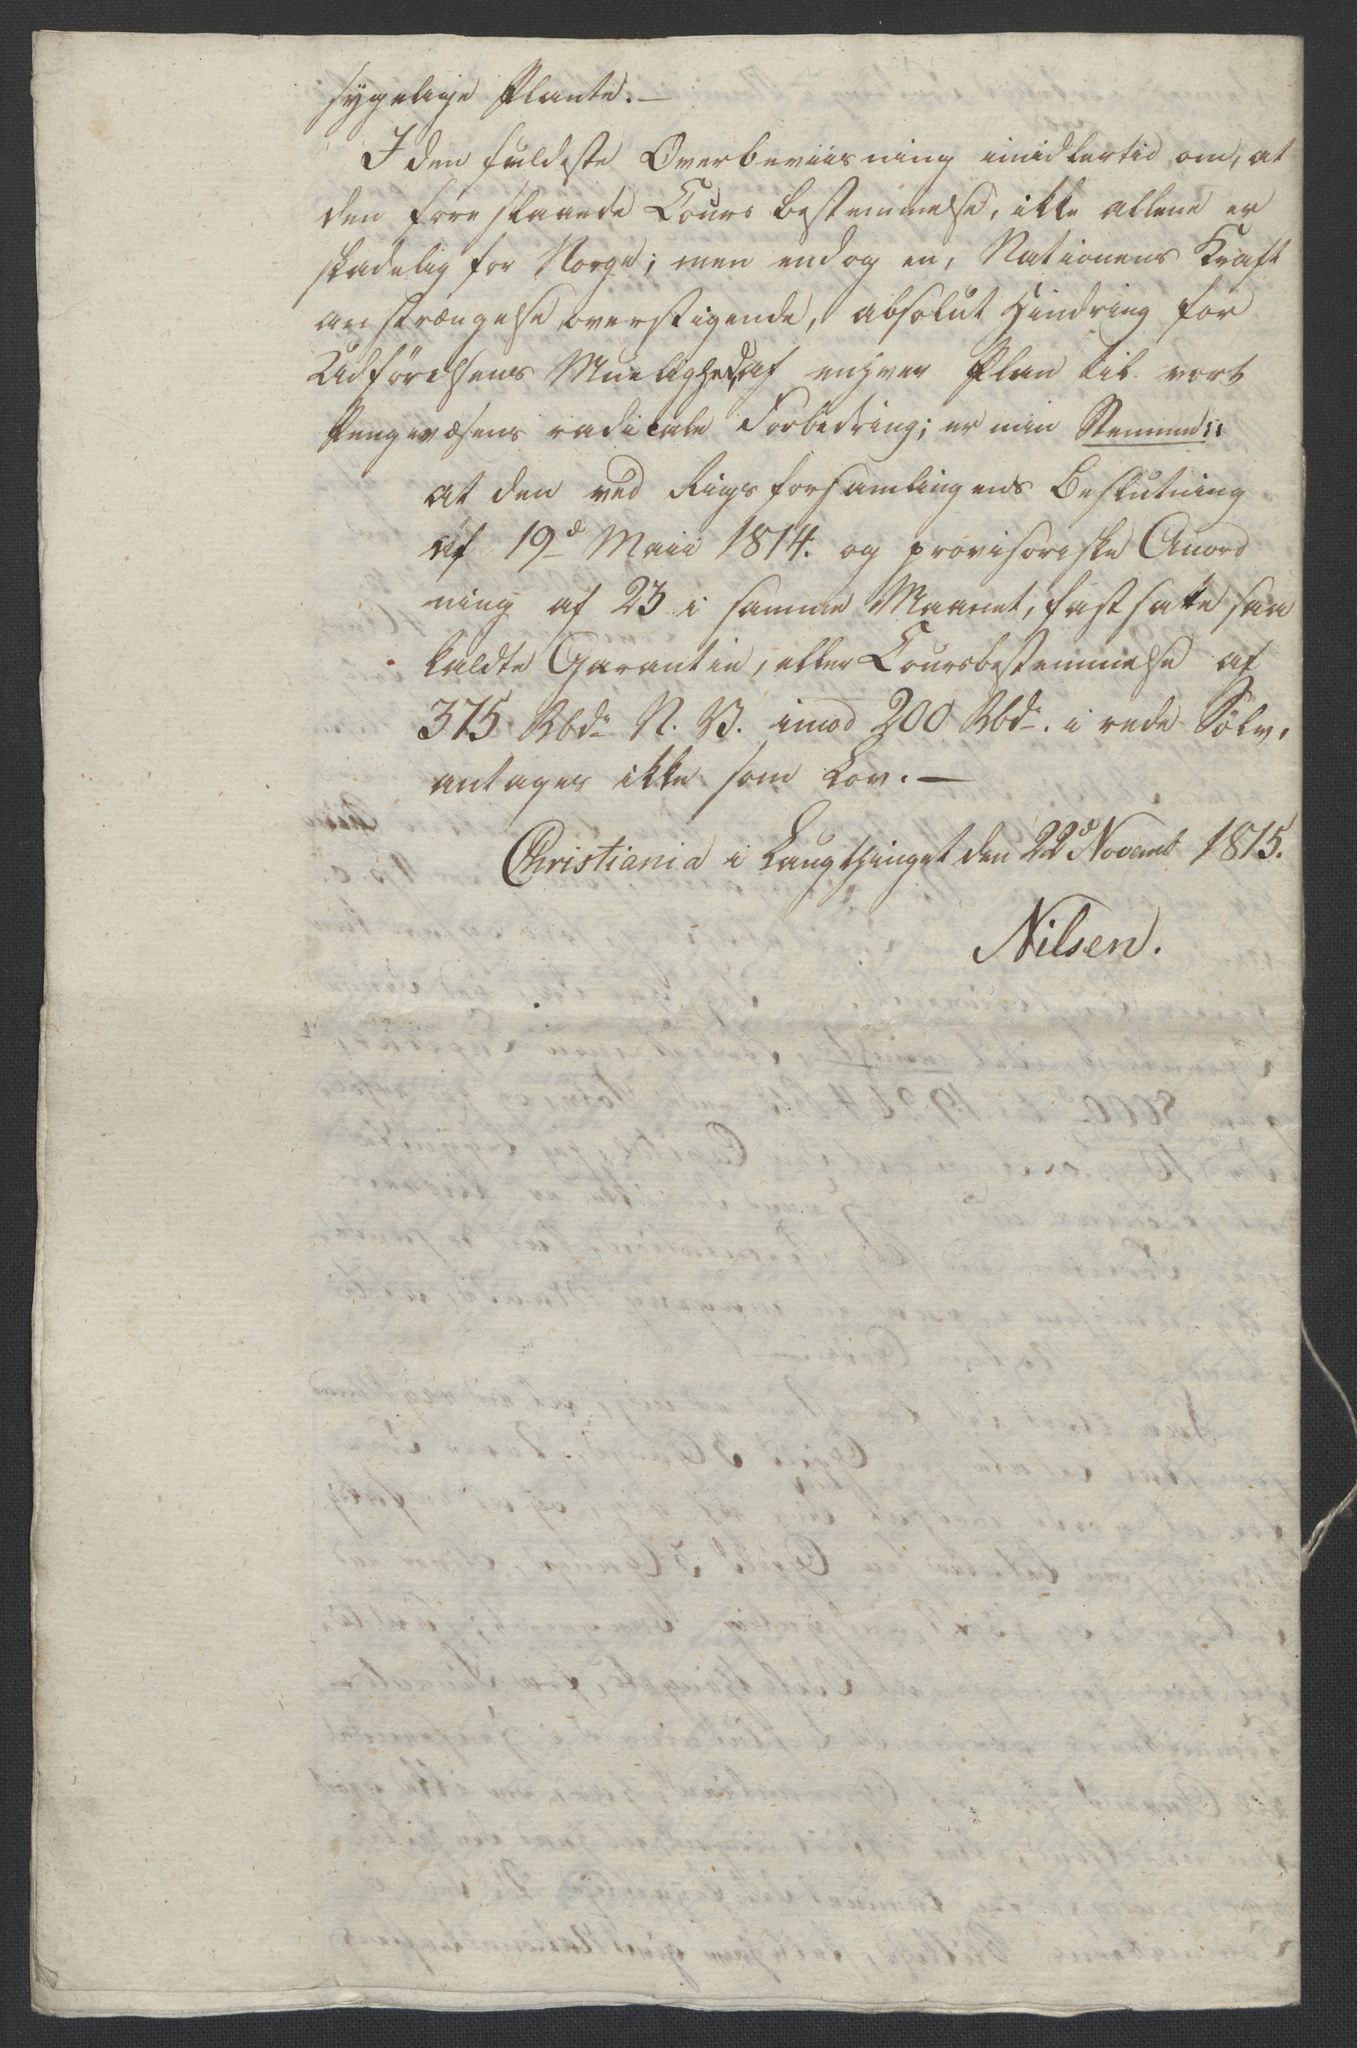 sygelige Plante. —
I den fuldeste Overbeviisning imidlertid om, at
den foreslaaede Cours bestemmelse, ikke allene er
skadelig for Norge; men endog en, Nationens Kraft
anstrængelse overstigende, absolut Hindring for
Udførelsens Muelighed af enhver Plan til vort
Pengevæsens radicale Forbedring; er min Stemme:
at den ved Rigsforsamlingens Beslutning
af 19d Maii 1814. og provisoriske Anord
ning af 23 i samme Maanet, fastsatte saa
kaldte Garantie, eller Coursbestemmelse af
375 Rbdr N. V. imod 200 Rbdr. i rede Sølv,
antages ikke som Lov. —
Christiania i Laugthinget den 22d Novemb 1815.
Nilsen.